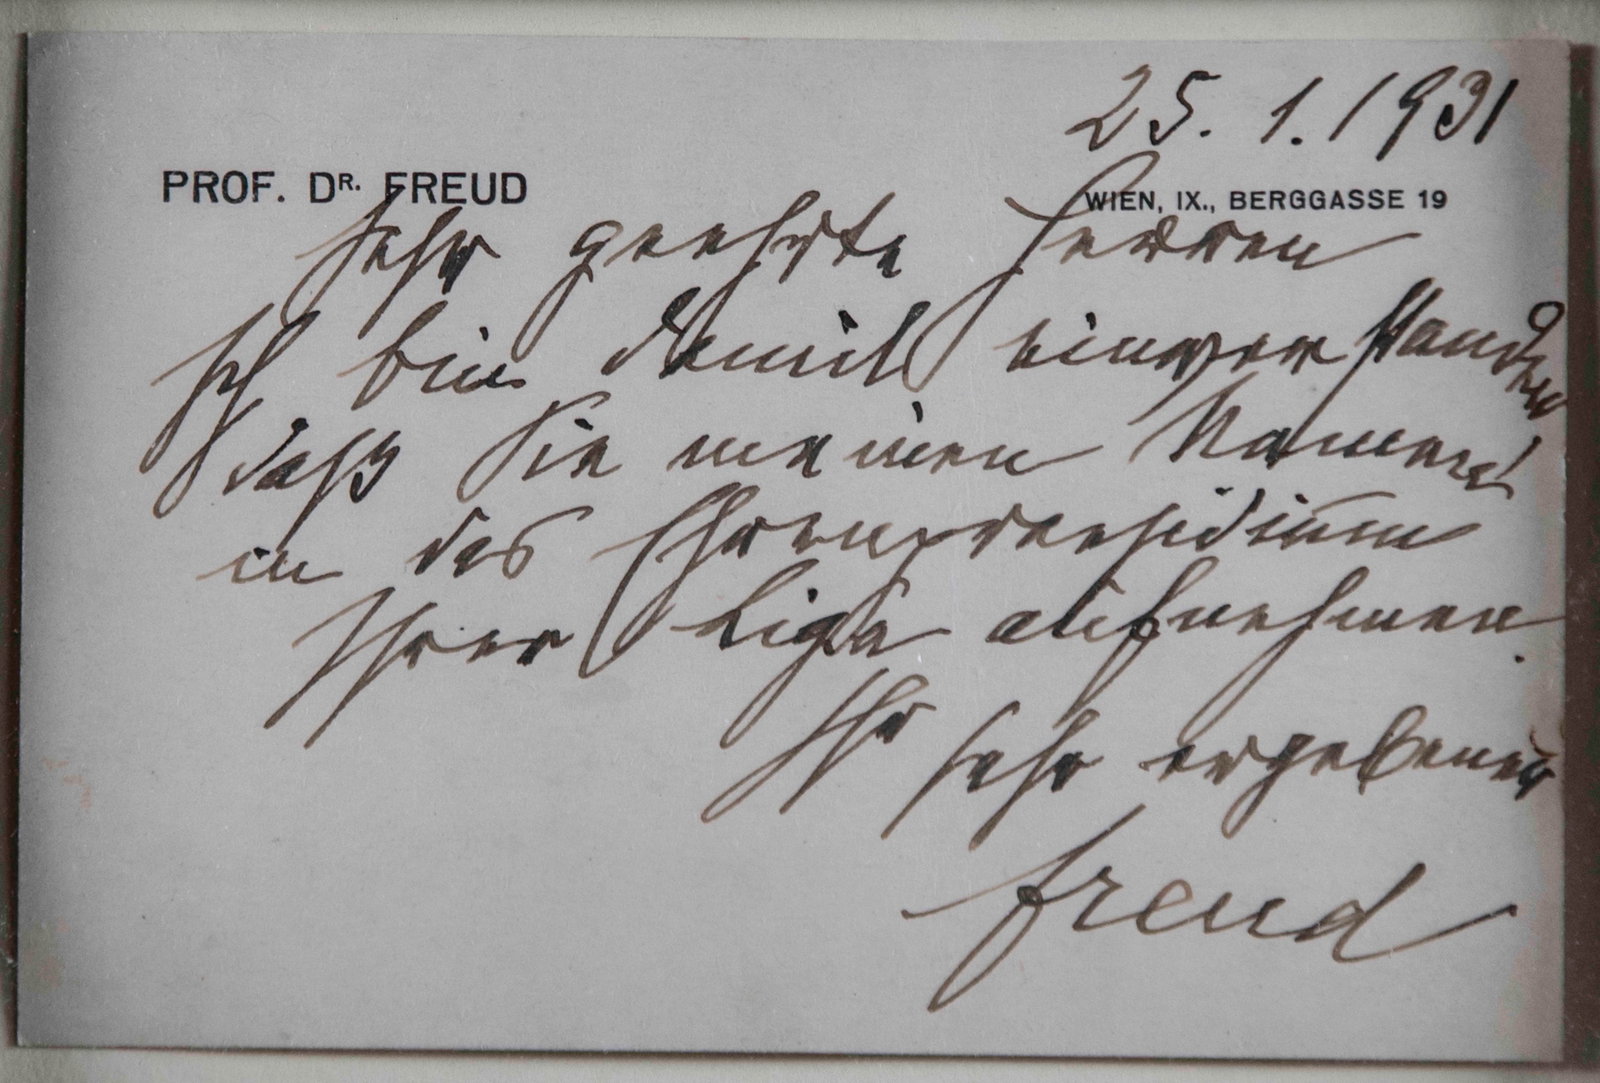 25. 1. 1931
PROF. DR. FREUD
WIEN, IX., BERGGASSE 19
Sehr geehrte Herren
Ich bin damit einverstanden
daß Sie meinen Namen
in das Ehrenpraesidium
Ihrer Liga aufnehmen.
Ihr sehr ergebener
Freud